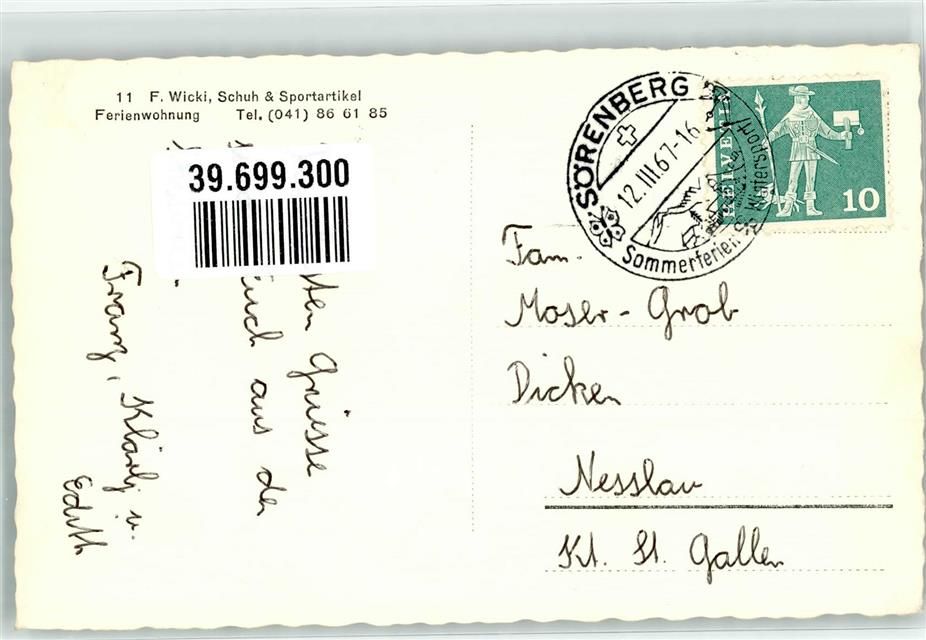 11 F. Wicki, Schuh & Sportartikel
Ferienwohnung Tel. (041) 86 61 85
39.699.300
Grüsse
Euch aus der
Franz, Klärly u.
Edith
SÖRENBERG
12.III.67-16
Sommerferien Wintersport
HELVETIA
10
Fam.
Moser-Grob
Dicken
Nesslau
Kt. St. Gallen